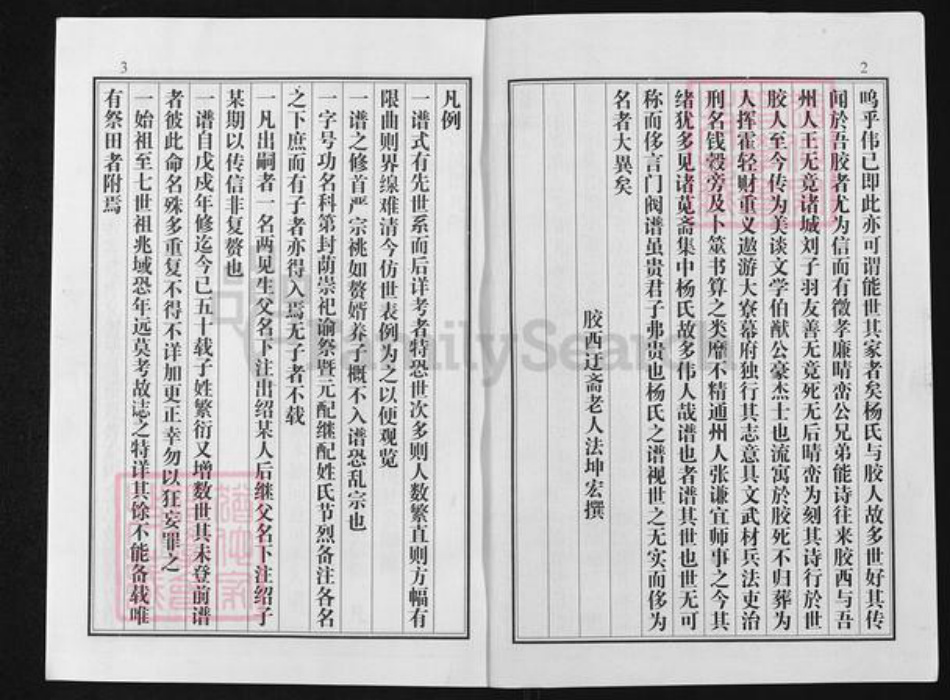 2
呜乎伟已即此亦可谓能世其家者矣杨氏与胶人故多世好其传
闻於吾胶者尤为信而有徵孝廉晴峦公兄弟能诗往来胶西与吾
州人王无竟诸城刘子羽友善无竟死无后晴峦为刻其诗行於世
胶人至今传为美谈文学伯猷公豪杰士也流寓於胶死不归葬为
人挥霍轻财重义遨游大寮幕府独行其志意具文武材兵法吏治
刑名钱穀旁及卜筮书算之类靡不精通州人张谦宜师事之今其
绪犹多见诸苋斋集中杨氏故多伟人哉谱也者谱其世也世无可
称而侈言门阀谱虽贵君子弗贵也杨氏之谱视世之无实而侈为
名者大異矣
胶西迂斋老人法坤宏撰
3
凡例
一谱式有先世系而后详考者特恐世次多则人数繁直则方幅有
限曲则界缐难清今仿世表例为之以便观览
一谱之修首严宗祧如赘婿养子概不入谱恐乱宗也
一字号功名科第封荫崇祀谕祭暨元配继配姓氏节烈备注各名
之下庶而有子者亦得入焉无子者不载
一凡出嗣者一名两见生父名下注出绍某人后继父名下注绍子
某期以传信非复赘也
一谱自戊戍年修迄今已五十载子姓繁衍又增数世其未登前谱
者彼此命名殊多重复不得不详加更正幸勿以狂妄罪之
一始祖至七世祖兆域恐年远莫考故誌之特详其馀不能备载唯
有祭田者附焉
FamilySearch